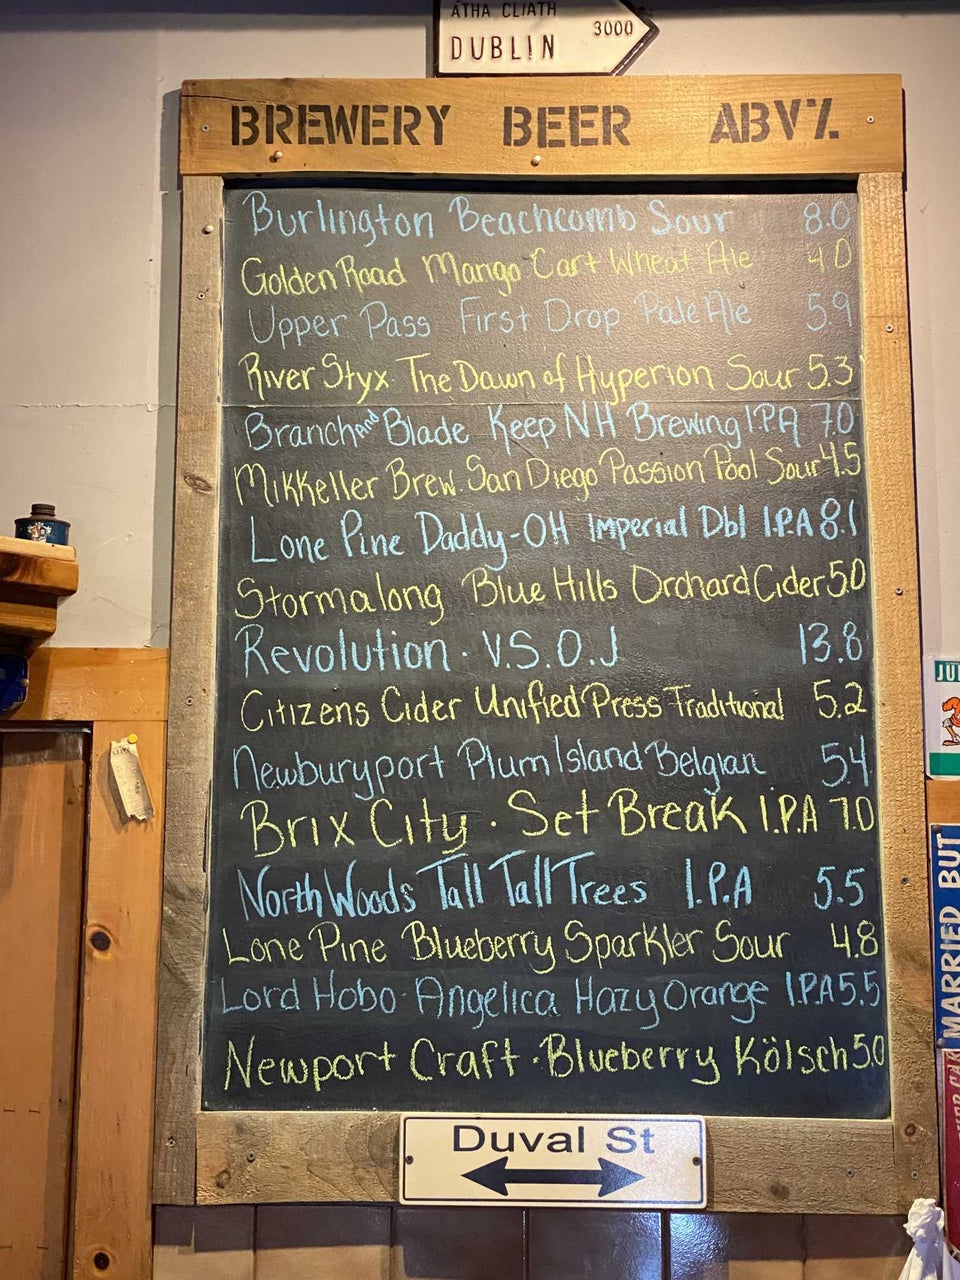 ÁTHA CLIATH
DUBLIN 3000
BREWERY BEER ABV%
Burlington Beachcomb Sour 8.0
Golden Road Mango Cart Wheat Ale 4.0
Upper Pass First Drop Pale Ale 5.9
River Styx. The Dawn of Hyperion Sour 5.3
Branch and Blade Keep NH Brewing I.P.A 7.0
Mikkeller Brew. San Diego Passion Pool Sour 4.5
Lone Pine Daddy-OH Imperial Dbl I.P.A 8.1
Stormalong Blue Hills Orchard Cider 5.0
Revolution · V.S.O.J 13.8
Citizens Cider Unified Press Traditional 5.2
Newburyport Plum Island Belgian 5.4
Brix City · Set Break I.P.A 7.0
North Woods Tall Tall Trees I.P.A 5.5
Lone Pine Blueberry Sparkler Sour 4.8
Lord Hobo · Angelica Hazy Orange I.P.A 5.5
Newport Craft · Blueberry Kölsch 5.0
Duval St
MARRIED BUT